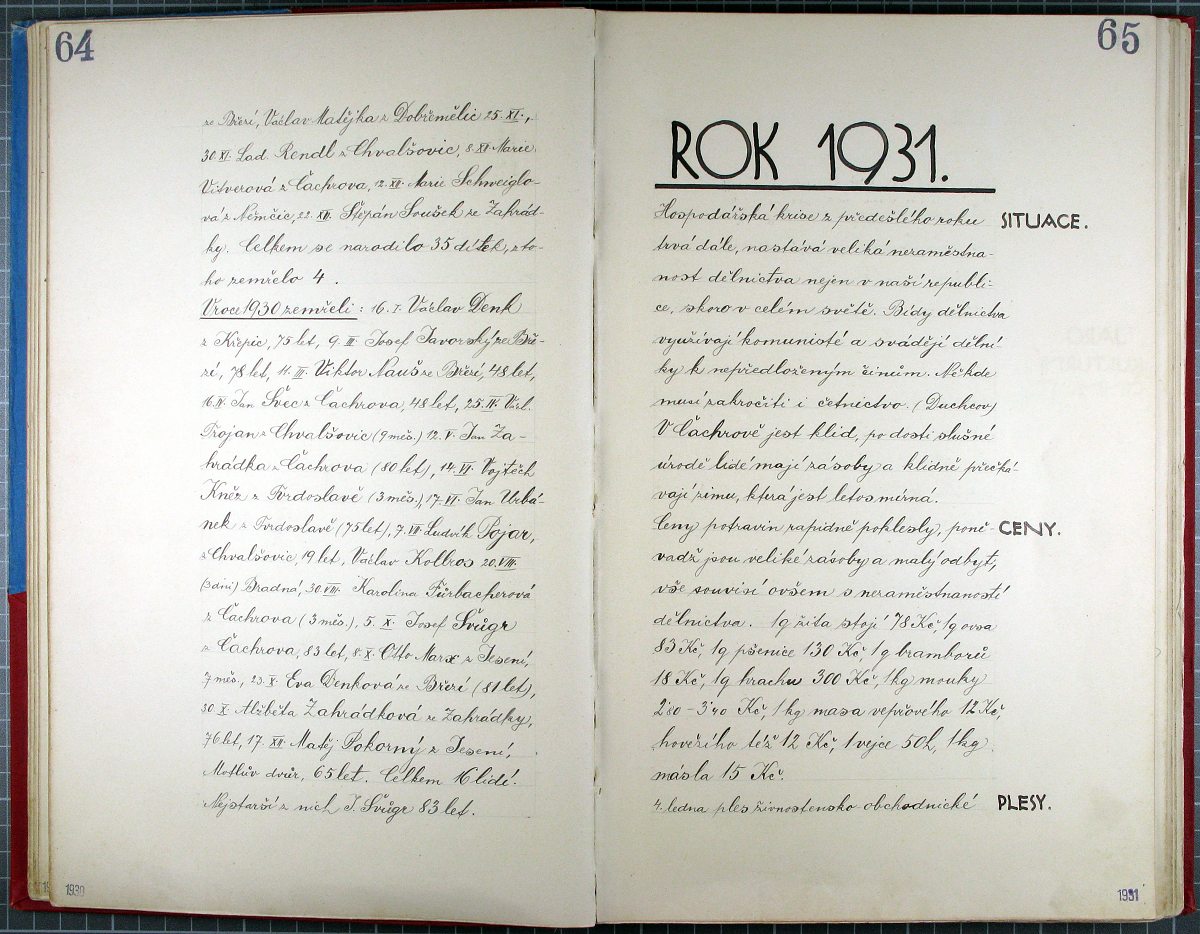 64
ze Březí, Václav Matějka z Dobřemělic 25. XI.,
30. XI. Lad. Rendl z Chvalšovic, 8. XII. Marie
Vítverová z Čachrova, 12. XII. Marie Schweiglo-
vá z Němčic, 22. XII. Štěpán Soušek ze Zahrád-
ky. Celkem se narodilo 35 dítek, z to-
ho zemřelo 4.
V roce 1930 zemřeli: 16. I. Václav Denk
z Křepic, 75 let, 9. III. Josef Javorský ze Bře-
zí, 78 let, 11. III. Viktor Nauš ze Březí, 48 let,
16. IV. Jan Švec z Čachrova, 48 let, 25. IV. Václ.
Trojan z Chvalšovic (9 měs.) 12. V. Jan Za-
hrádka z Čachrova (80 let), 14. VI. Vojtěch
Kněz z Tvrdoslavě (3 měs.), 17. VI. Jan Urbá-
nek z Tvrdoslavě (75 let), 7. VII. Ludvík Pojar,
z Chvalšovic, 19 let, Václav Kolbros 20. VIII.
(3 dni) Bradná, 30. VIII. Karolina Fürbacherová
z Čachrova (3 měs.), 5. X. Josef Švůgr
z Čachrova, 83 let, 8. X. Otto Marx z Jesení,
7 měs., 23. X. Eva Denková ze Březí (81 let),
30. X. Alžběta Zahrádková ze Zahrádky,
76 let, 17. XII. Matěj Pokorný z Jesení,
Motlův dvůr, 65 let. Celkem 16 lidí.
Nejstarší z nich J. Švůgr 83 let.
1930
65
ROK 1931.
Hospodářská krise z předešlého roku SITUACE.
trvá dále, nastává veliká nezaměstna-
nost dělnictva nejen v naší republi-
ce, skoro v celém světě. Bídy dělnictva
využívají komunisté a svádějí dělní-
ky k nepředloženým činům. Někde
musí zakročiti i četnictvo. (Duchcov)
V Čachrově jest klid, po dosti slušné
úrodě lidé mají zásoby a klidně přečká-
vají zimu, která jest letos mírná.
Ceny potravin rapidně poklesly, poně- CENY.
vadž jsou veliké zásoby a malý odbyt,
vše souvisí ovšem s nezaměstnaností
dělnictva. 1q žita stojí 78 Kč, 1q ovsa
83 Kč, 1q pšenice 130 Kč, 1q bramborů
18 Kč, 1q hrachu 300 Kč, 1kg mouky
2'80 - 3'40 Kč, 1 kg masa vepřového 12 Kč,
hovězího též 12 Kč, 1 vejce 50h, 1 kg
másla 15 Kč.
4. ledna ples živnostensko-obchodnické PLESY.
1931